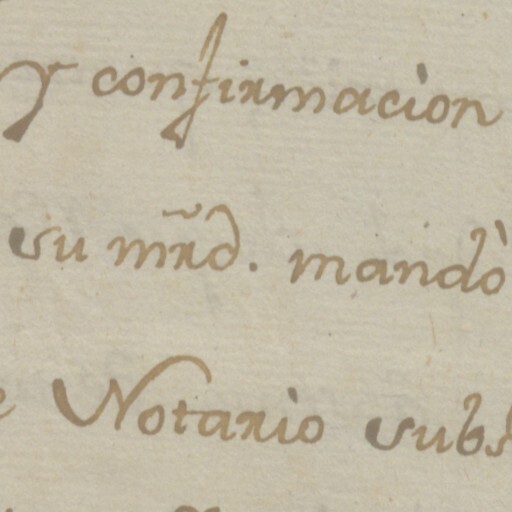 y confirmaciòn
su mr̃d. mandò
Notariò subs